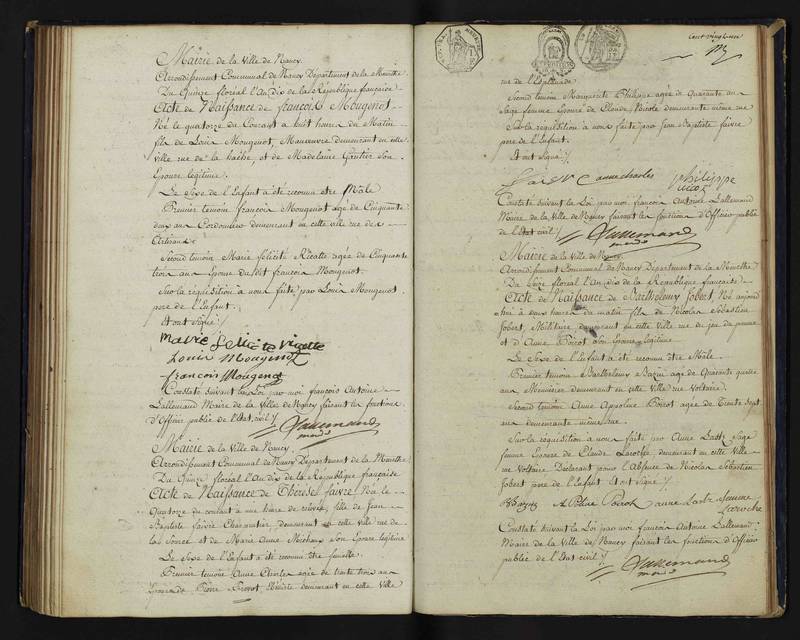 Mairie de la Ville de Nancy.
Arrondissement Communal de Nancy Département de la Meurthe
Du Quinze floréal l'An dix de la République française
Acte de Naissance de francois Mougenot
Né le quatorze du Courant a huit heures du Matin
fils de Louis Mougenot, Manoeuvre demeurant en cette
ville rue de la hache, et de Madelaine Gautier Son
Epouse legitime.
Le Sexe de l'Enfant a été reconnu etre Male
Premier temoin francois Mougenot agé de Cinquante
deux ans Cordonnier demeurant en cette ville rue des
Artisans
Second temoin Marie felicité Ricatte agée de Cinquante
trois ans Epouse du dit francois Mougenot.
Sur la réquisition a nous faite par Louis Mougenot
pere de l'Enfant.
Et ont Signé /.
marie felicite
Louis Mougenot
francois Mougenot
Constaté suivant la Loi par moi francois Antoine
Lallemand Maire de la Ville de Nancy faisant les fonctions
d'Officier public de l'Etat civil /.
Lallemand
Mairie de la Ville de Nancy.
Arrondissement Communal de Nancy Département de la Meurthe
Du Quinze floréal l'An dix de la République française
Acte de Naissance de Thérèse faivre Née le
Quatorze du courant a une heure de relevée, fille de Jean
Baptiste faivre Charpentier, demeurant en cette ville rue de
la Source et de Marie Anne Son Epouse légitime
Le Sexe de l'Enfant a été reconnu être femelle.
Premier temoin Anne Charles agée de trente trois ans
Epouse de Pierre demeurant en cette Ville
Cent vingt
rue de l'Esplanade
Second temoin Marguerite Philippe agée de Quarante ans
Sage femme Epouse de Claude Nicole demeurante même rue
Sur la réquisition a nous faite par Jean Baptiste faivre
pere de l'Enfant.
Et ont Signé /.
anne charles
philippe
Constaté suivant la Loi par moi francois Antoine Lallemand
Maire de la Ville de Nancy faisant les fonctions d'Officier public
de l'Etat civil /.
Lallemand
Mairie de la Ville de Nancy.
Arrondissement Communal de Nancy Département de la Meurthe
Du Seize floréal l'An dix de la République française
Acte de Naissance de Barthelemy Jobert, Né aujourd
hui a deux heures du matin fils de Nicolas Sébastien
Jobert, Militaire demeurant en cette Ville rue du jeu de paume
et d'Anne Poirot Son Epouse legitime
Le Sexe de l'Enfant a été reconnu être Male.
Premier temoin Barthelemy Bazin agé de Quarante quatre
ans Menuisier demeurant en cette Ville rue Voltaire.
Second temoin Anne Appoline Poirot agée de Trente Sept
ans demeurante même rue.
Sur la réquisition a nous faite par Anne Sage
femme Epouse de Claude Laroche demeurant en cette Ville
rue Voltaire Declarant pour l'Absence de Nicolas Sébastien
Jobert pere de l'Enfant. Et ont Signé /.
Poirot anne femme
Laroche
Constaté suivant la Loi par moi francois Antoine Lallemand
Maire de la Ville de Nancy faisant les fonctions d'Officier
public de l'Etat civil /.
Lallemand